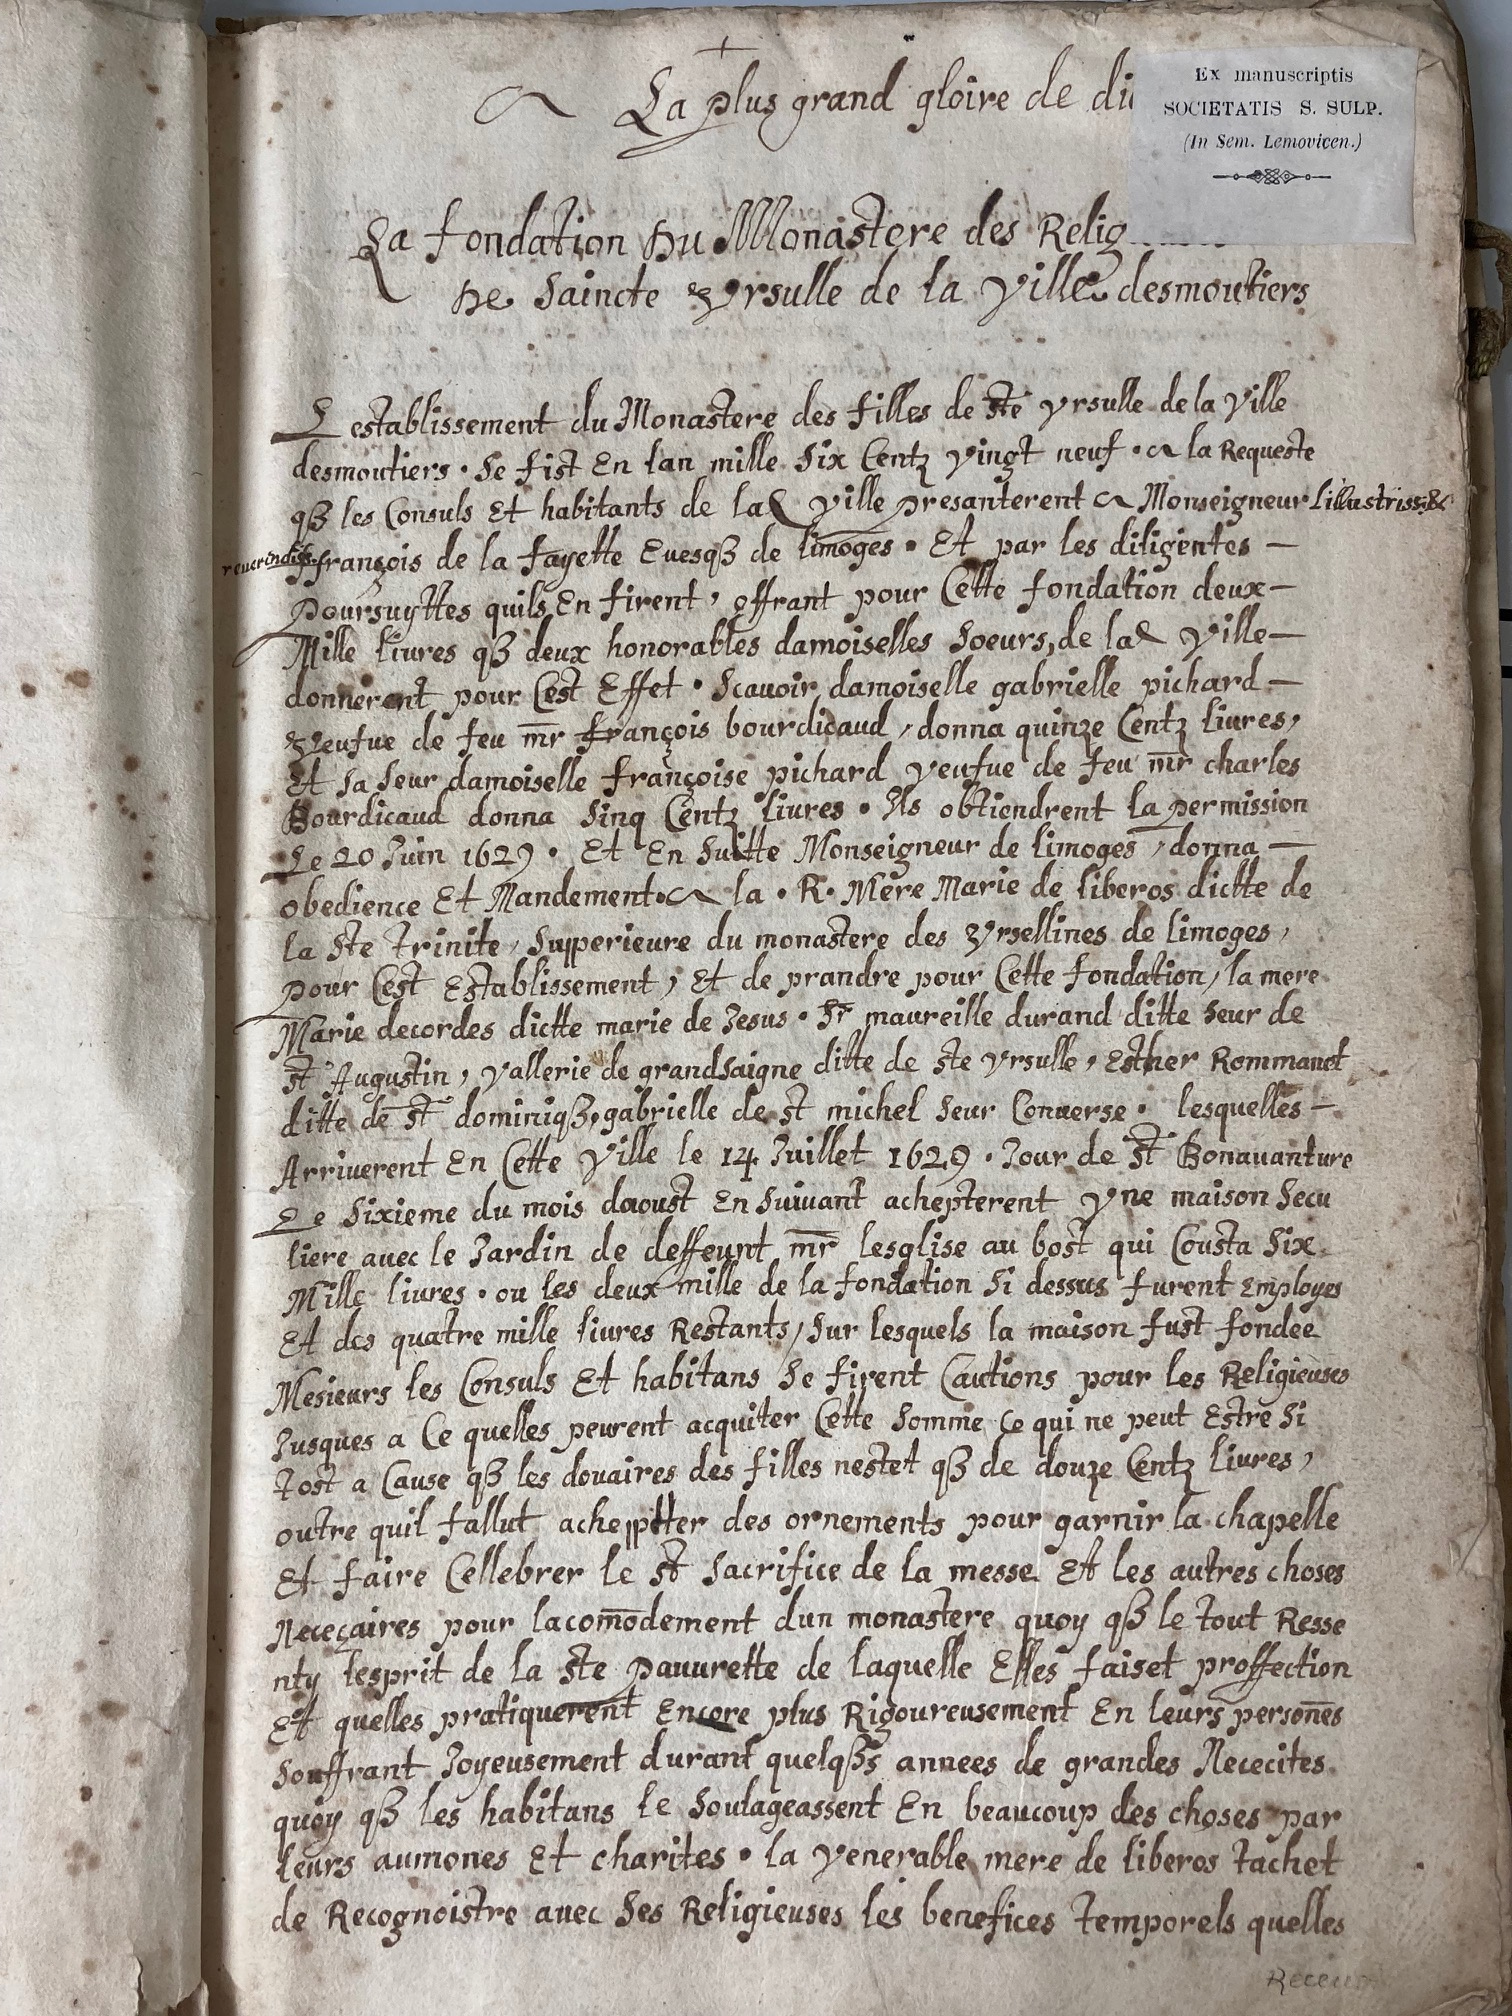 +
A La plus grand gloire de di
Ex manuscriptis
SOCIETATIS S. SULP.
(In Sem. Lemovicen.)
La fondation Du Monastere des Relig
De Saincte Vrsulle de la Ville desmoutiers
L establissement du Monastere des filles de ste Vrsulle de la Ville
desmoutiers. Se fist En lan mille Six Centz Vingt neuf. A la Requeste
qß les Consuls Et habitants de lad Ville presanterent A Monseigneur Lillustriss: &
reuerendiss. françois de la fayette Euesqß de limoges. Et par les diligentes —
poursuyttes quils En firent, offrant pour Cette fondation deux —
Mille liures qß deux honorables damoiselles Soeurs, de lad Ville —
donnerent pour Cest Effet. Scauoir damoiselle gabrielle pichard —
Veufue de feu mr françois bourdicaud, donna quinze Centz liures,
Et Sa Seur damoiselle françoise pichard Veufue de feu mr charles
Bourdicaud donna Sinq Centz liures. Ils obtiendrent la permission
Le 20 Juin 1629. Et En Suitte Monseigneur de limoges, donna —
obedience Et Mandement. A la. R. Mere Marie de liberos dictte de
la ste trinite, Supperieure du monastere des Vrsellines de limoges,
pour Cest Establissement, Et de prandre pour Cette fondation, la mere
Marie decordes dictte marie de Jesus. Sr maureille durand ditte Seur de
st Augustin, Vallerie de grandsaigne ditte de ste Vrsulle, Esther Rommanet
ditte de st dominiqß, gabrielle de st michel Seur Conuerse. lesquelles —
Arriuerent En Cette Ville le 14 Juillet 1629. Jour de st Bonauanture
Le Sixieme du mois daoust En Suiuant achepterent Vne maison Secu
liere auec le Jardin de deffeunt mr lesglise au bost qui Cousta Six
Mille liures. ou les deux mille de la fondation Si dessus furent Employes
Et des quatre mille liures Restants, Sur lesquels la maison fust fondee
Mesieurs les Consuls Et habitans Se firent Cautions pour les Religieuses
Jusques a Ce quelles peurent acquiter Cette Somme Ce qui ne peut Estre Si
tost a Cause qß les douaires des filles nestet qß de douze Centz liures,
outre quil fallut achepptter des ornements pour garnir la chapelle
Et faire Cellebrer le st Sacrifice de la messe Et les autres choses
Neceçaires pour lacomodement dun monastere quoy qß le tout Resse
nty lesprit de la ste pauurette de laquelle Elles faiset proffection
Et quelles pratiquerent Encore plus Rigoureusement En leurs persones
Souffrant Joyeusement durant quelqßs annees de grandes Nececites
quoy qß les habitans le Soulageassent En beaucoup des choses par
leurs aumones Et charites. la Venerable mere de liberos tachet
de Recognoistre auec Ses Religieuses les benefices temporels quelles